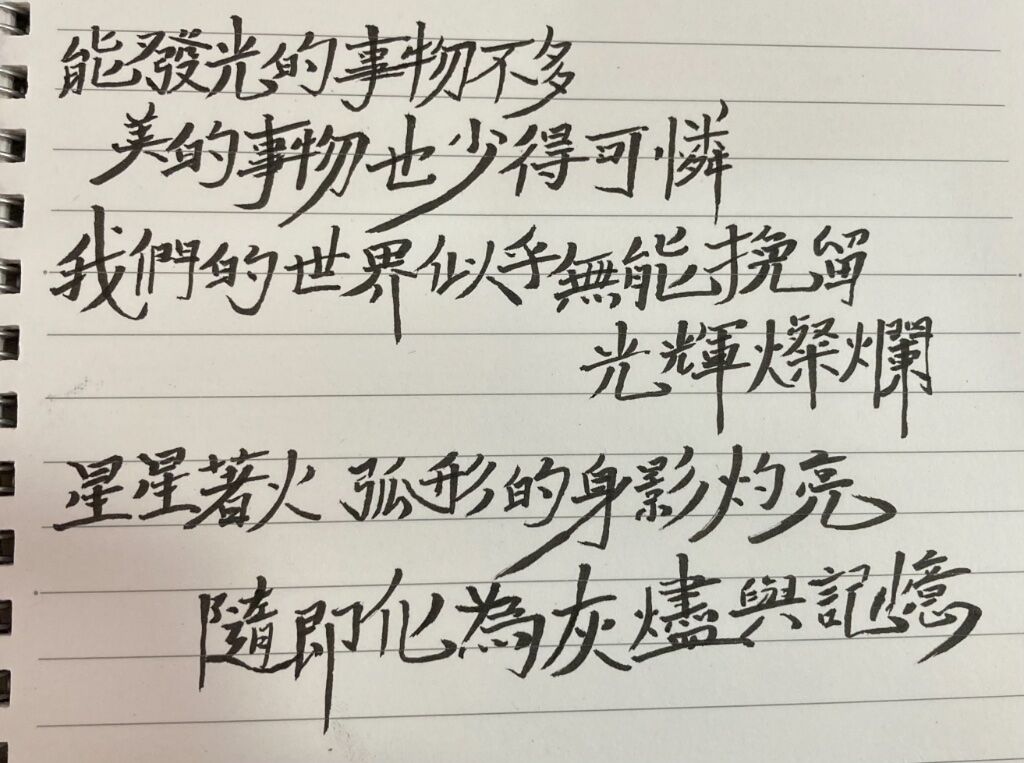 能發光的事物不多
美的事物也少得可憐
我們的世界似乎無能挽留
光輝燦爛
星星著火 弧形的身影灼亮
隨即化為灰燼與記憶